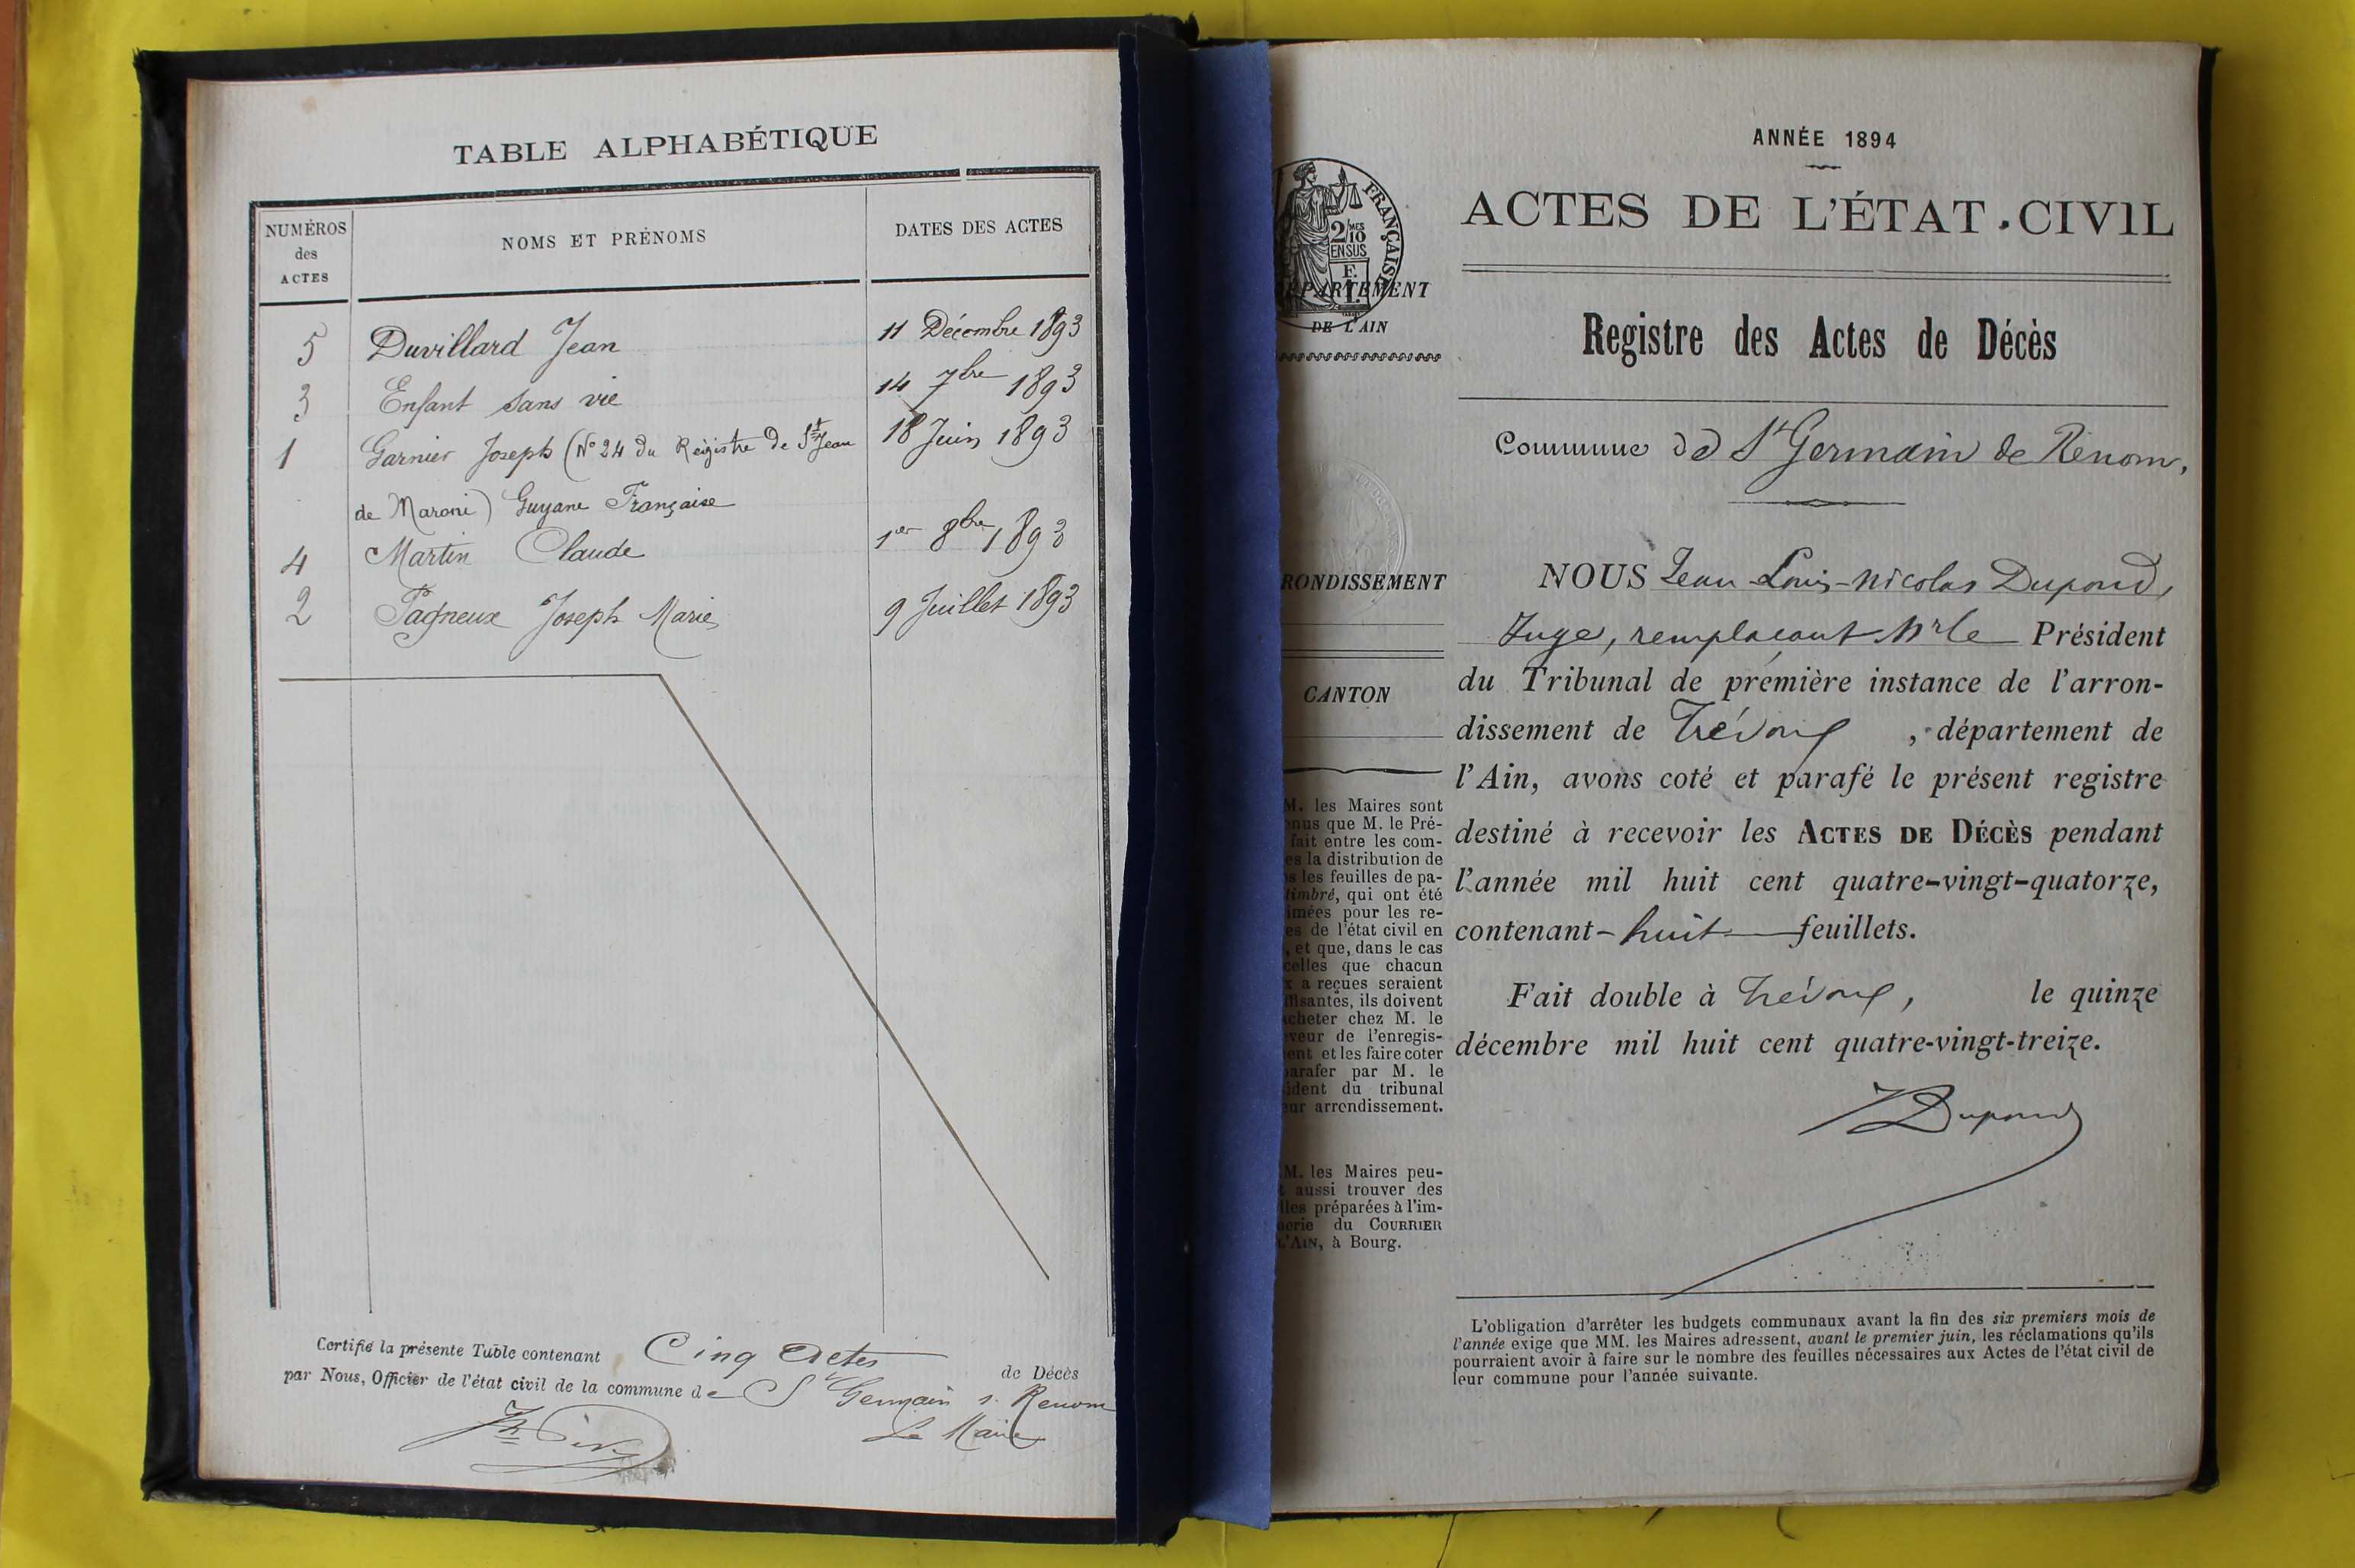 TABLE ALPHABÉTIQUE
NUMÉROS des ACTES
NOMS ET PRÉNOMS
DATES DES ACTES
5 Duvillard Jean 11 Décembre 1893
3 Enfant sans vie 14 7bre 1893
1 Garnier Joseph (N° 24 du Registre de St Jean 18 Juin 1893
de Maroni) Guyane Française
4 Martin Claude 1er 8bre 1893
2 Pagneux Joseph Marie 9 Juillet 1893
Certifié la présente Table contenant Cinq Actes de Décès
par Nous, Officier de l'état civil de la commune de St Germain s. Renom
Le Maire
ANNÉE 1894
ACTES DE L'ÉTAT CIVIL
FRANÇAISE
2/10 MES
EN SUS
DE L'AIN
Registre des Actes de Décès
Commune de St Germain de Renom,
RONDISSEMENT
CANTON
NOUS Jean-Louis-Nicolas Dupond,
Juge, remplaçant Mr le Président
du Tribunal de première instance de l'arron-
dissement de Trévoux, département de
l'Ain, avons coté et parafé le présent registre
destiné à recevoir les ACTES DE DÉCÈS pendant
l'année mil huit cent quatre-vingt-quatorze,
contenant - huit feuillets.
Fait double à Trévoux, le quinze
décembre mil huit cent quatre-vingt-treize.
Dupond
M. les Maires sont
que M. le Pré-
fait entre les com-
la distribution de
les feuilles de pa-
timbré, qui ont été
pour les re-
de l'état civil en
, et que, dans le cas
celles que chacun
a reçues seraient
, ils doivent
acheter chez M. le
de l'enregis-
et les faire coter
parafer par M. le
du tribunal
arrondissement.
M. les Maires peu-
aussi trouver des
préparées à l'im-
du COURRIER
L'AIN, à Bourg.
L'obligation d'arrêter les budgets communaux avant la fin des six premiers mois de
l'année exige que MM. les Maires adressent, avant le premier juin, les réclamations qu'ils
pourraient avoir à faire sur le nombre des feuilles nécessaires aux Actes de l'état civil de
leur commune pour l'année suivante.